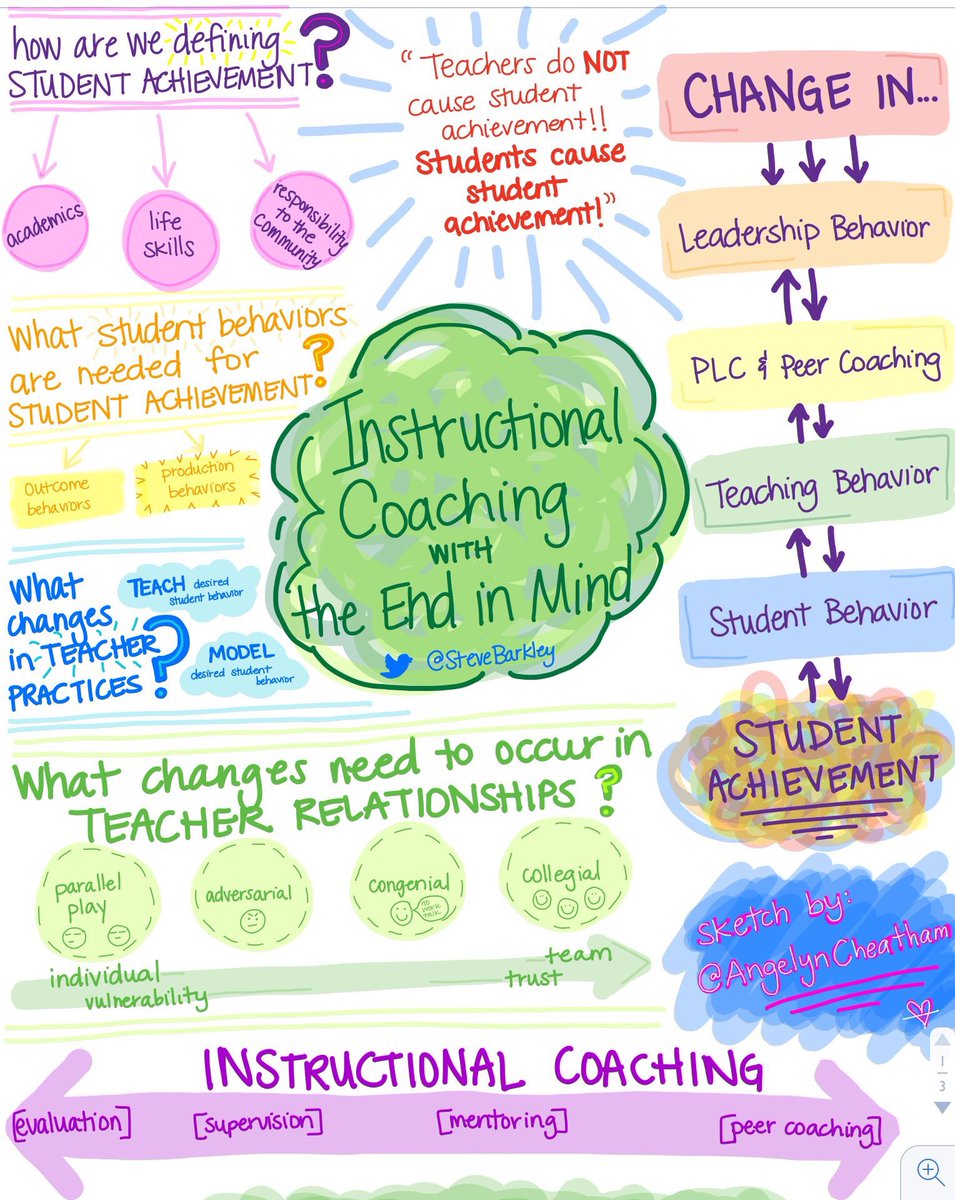 how are we defining
STUDENT ACHIEVEMENT?
academics
life
skills
responsibility
to the
Community
"Teachers do NOT
cause student
achievement!!
Students cause
student
achievement!"
CHANGE IN...
Leadership Behavior
PLC & Peer Coaching
Teaching Behavior
Student Behavior
STUDENT
ACHIEVEMENT
What student behaviors
are needed for
STUDENT ACHIEVEMENT?
Outcome
behaviors
production
behaviors
Instructional
Coaching
WITH
the End in Mind
@SteveBarkley
What
changes
in TEACHER
PRACTICES?
TEACH desired
student behavior
MODEL
desired student
behavior
What changes need to occur in
TEACHER RELATIONSHIPS?
parallel
play
adversarial
congenial
no
work
talk
collegial
individual
vulnerability
trust
team
sketch by:
@AngelynCheatham
INSTRUCTIONAL COACHING
[evaluation]
[supervision]
[mentoring]
[peer coaching]
1
3